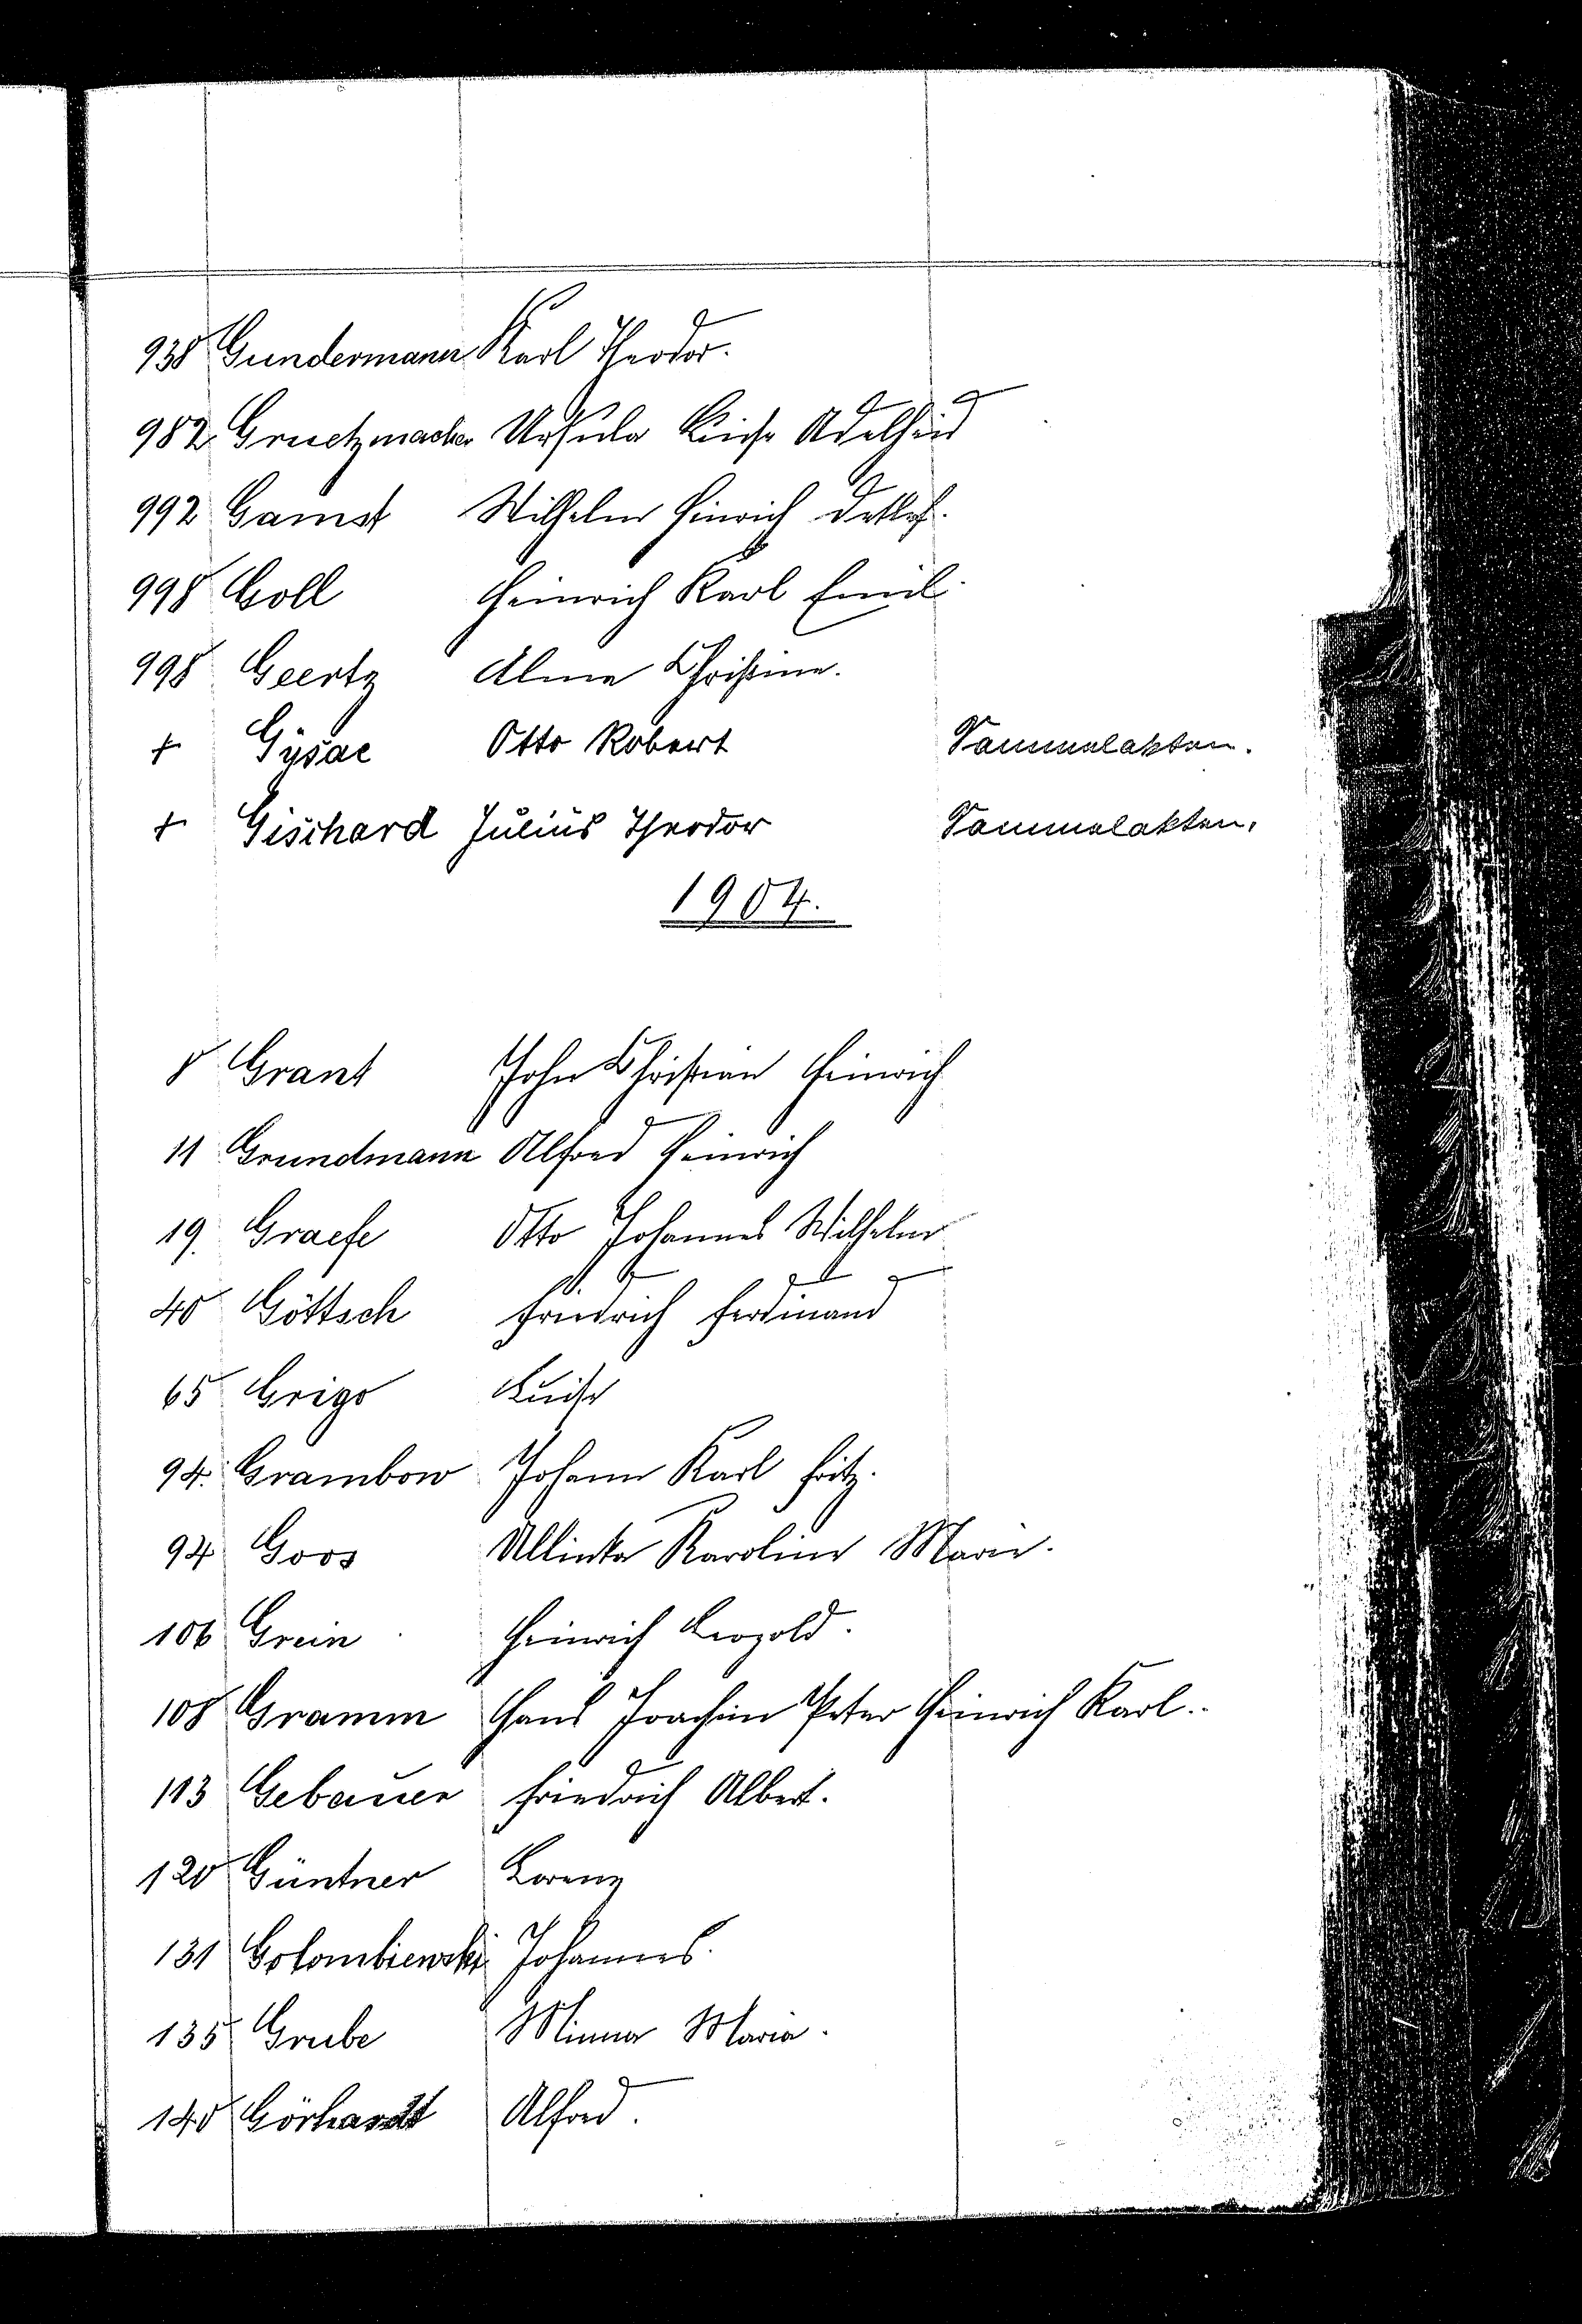 938 Gundermann Karl Theodor.
982 Gruetzmacher Ursula Luise Adelheid
992 Gamst Wilhelm Hinrich Detlef.
998 Goll Heinrich Karl Emil.
998 Geertz Alma Christine.
+ Gysae Otto Robert Sammelakten.
+ Gischard Julius Theodor Sammelakten.
1904.
8 Grant John Christian Heinrich
11 Grundmann Alfred Heinrich
19. Graefe Otto Johannes Wilhelm
40 Göttsch Friedrich Ferdinand
65 Grigo Luise
94. Grambow Johann Karl Fritz.
94 Goos Karoline Marie.
106 Grein Heinrich Leopold.
108 Gramm Hans Joachim Peter Heinrich Karl.
113 Gebauer Friedrich Albert.
120 Güntner Lorenz
131 Golombiewski Johannes.
135 Grube Minna Maria.
140 Görhardt Alfred.